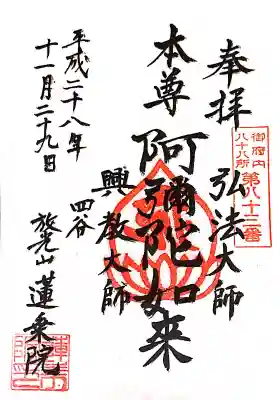 奉拝
弘法大師
御府内
八十八所
第八十三番
本尊
阿彌陀如来
興教大師
平成二十八年
十一月二十九日
四谷
蓮乗院